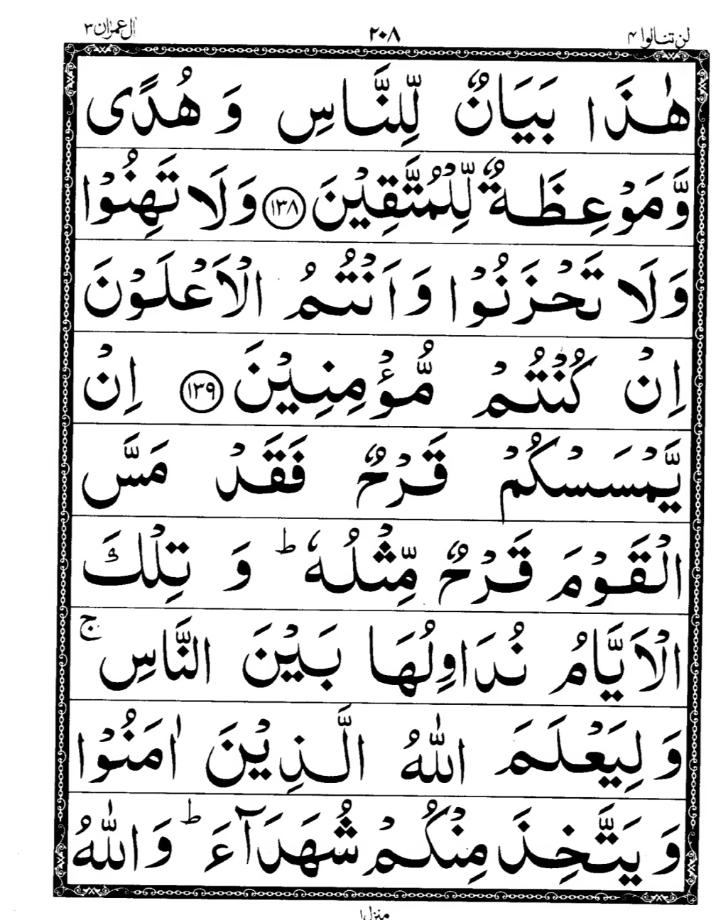 اٰل عمرٰن ۳ ۲۰۸ لن تنالوا ۴
هٰذَا بَيَانٌ لِّلنَّاسِ وَ هُدًى
وَّمَوْعِظَةٌ لِّلْمُتَّقِيْنَ ﴿۱۳۸﴾ وَلَا تَهِنُوْا
وَلَا تَحْزَنُوْا وَاَنْتُمُ الْاَعْلَوْنَ
اِنْ كُنْتُمْ مُّؤْمِنِيْنَ ﴿۱۳۹﴾ اِنْ
يَّمْسَسْكُمْ قَرْحٌ فَقَدْ مَسَّ
الْقَوْمَ قَرْحٌ مِّثْلُهٗ ؕ وَ تِلْكَ
الْاَيَّامُ نُدَاوِلُهَا بَيْنَ النَّاسِ ۚ
وَ لِيَعْلَمَ اللّٰهُ الَّذِيْنَ اٰمَنُوْا
وَ يَتَّخِذَ مِنْكُمْ شُهَدَآءَ ؕ وَاللّٰهُ
منزل ۱